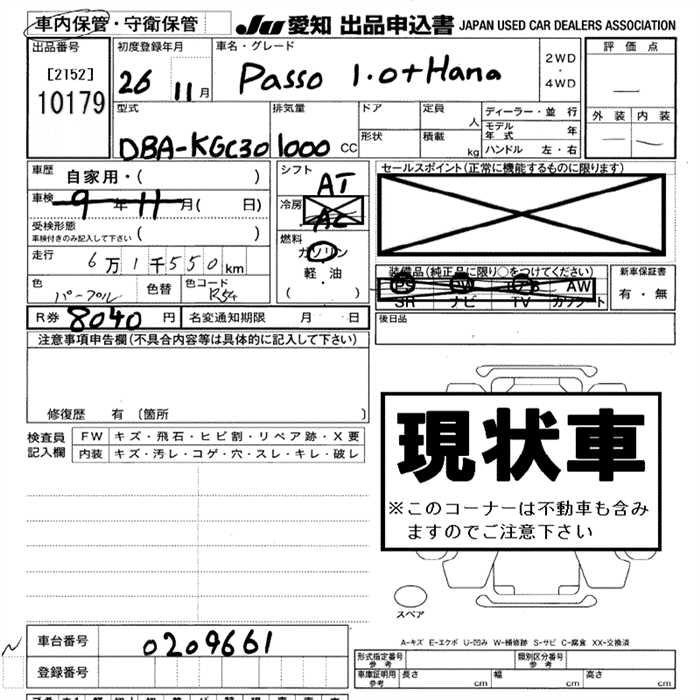 車内保管・守衛保管
JU 愛知 出品申込書 JAPAN USED CAR DEALERS ASSOCIATION
出品番号
[2152]
10179
初度登録年月
26 11月
車名・グレード
Passo 1.0+Hana
2WD
・
4WD
評価点
外装 内装
型式
DBA-KGC30
排気量
1000 CC
ドア
形状
定員
人
積載
kg
ディーラー・並行
モデル年式 年
ハンドル 左・右
車歴 自家用・( )
車検 9年11月( 日)
受検形態
車検付きのみ記入して下さい ( )
走行 6万1千550km
色 パープル 色替 色コード
R券 8040円 名変通知期限 月 日
シフト
AT
冷房
AC
燃料
ガソリン
軽・油
( )
セールスポイント(正常に機能するものに限ります)
装備品(純正品に限り○をつけてください)
PS PW AW
SR ナビ TV カワシート
新車保証書
有・無
後日品
注意事項申告欄(不具合内容等は具体的に記入して下さい)
修復歴 有 〔箇所 〕
検査員記入欄
FW キズ・飛石・ヒビ割・リペア跡・X要
内装 キズ・汚レ・コゲ・穴・スレ・キレ・破レ
現状車
※このコーナーは不動車も含み
ますのでご注意下さい
スペア
A-キズ E-エクボ U-凹み W-補修跡 S-サビ C-腐食 XX-交換済
車台番号 0209661
登録番号
形式指定番号 参考
類別区分番号 参考
車庫証明用 参考 長さ cm 幅 cm 高さ cm